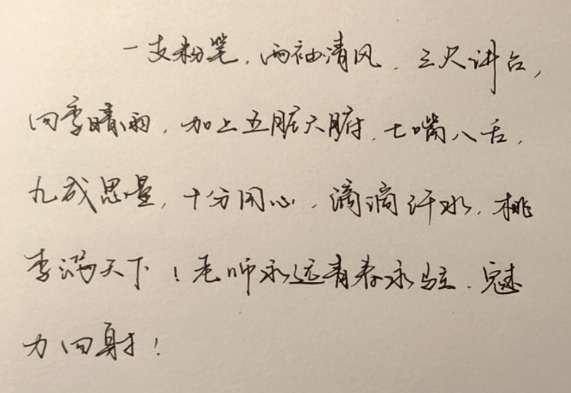 一支粉笔,两袖清风,三尺讲台,
四季晴雨,加上五脏六腑,七嘴八舌,
九成思量,十分用心,滴滴汗水,桃
李满天下!老师永远青春永驻,魅
力四射!